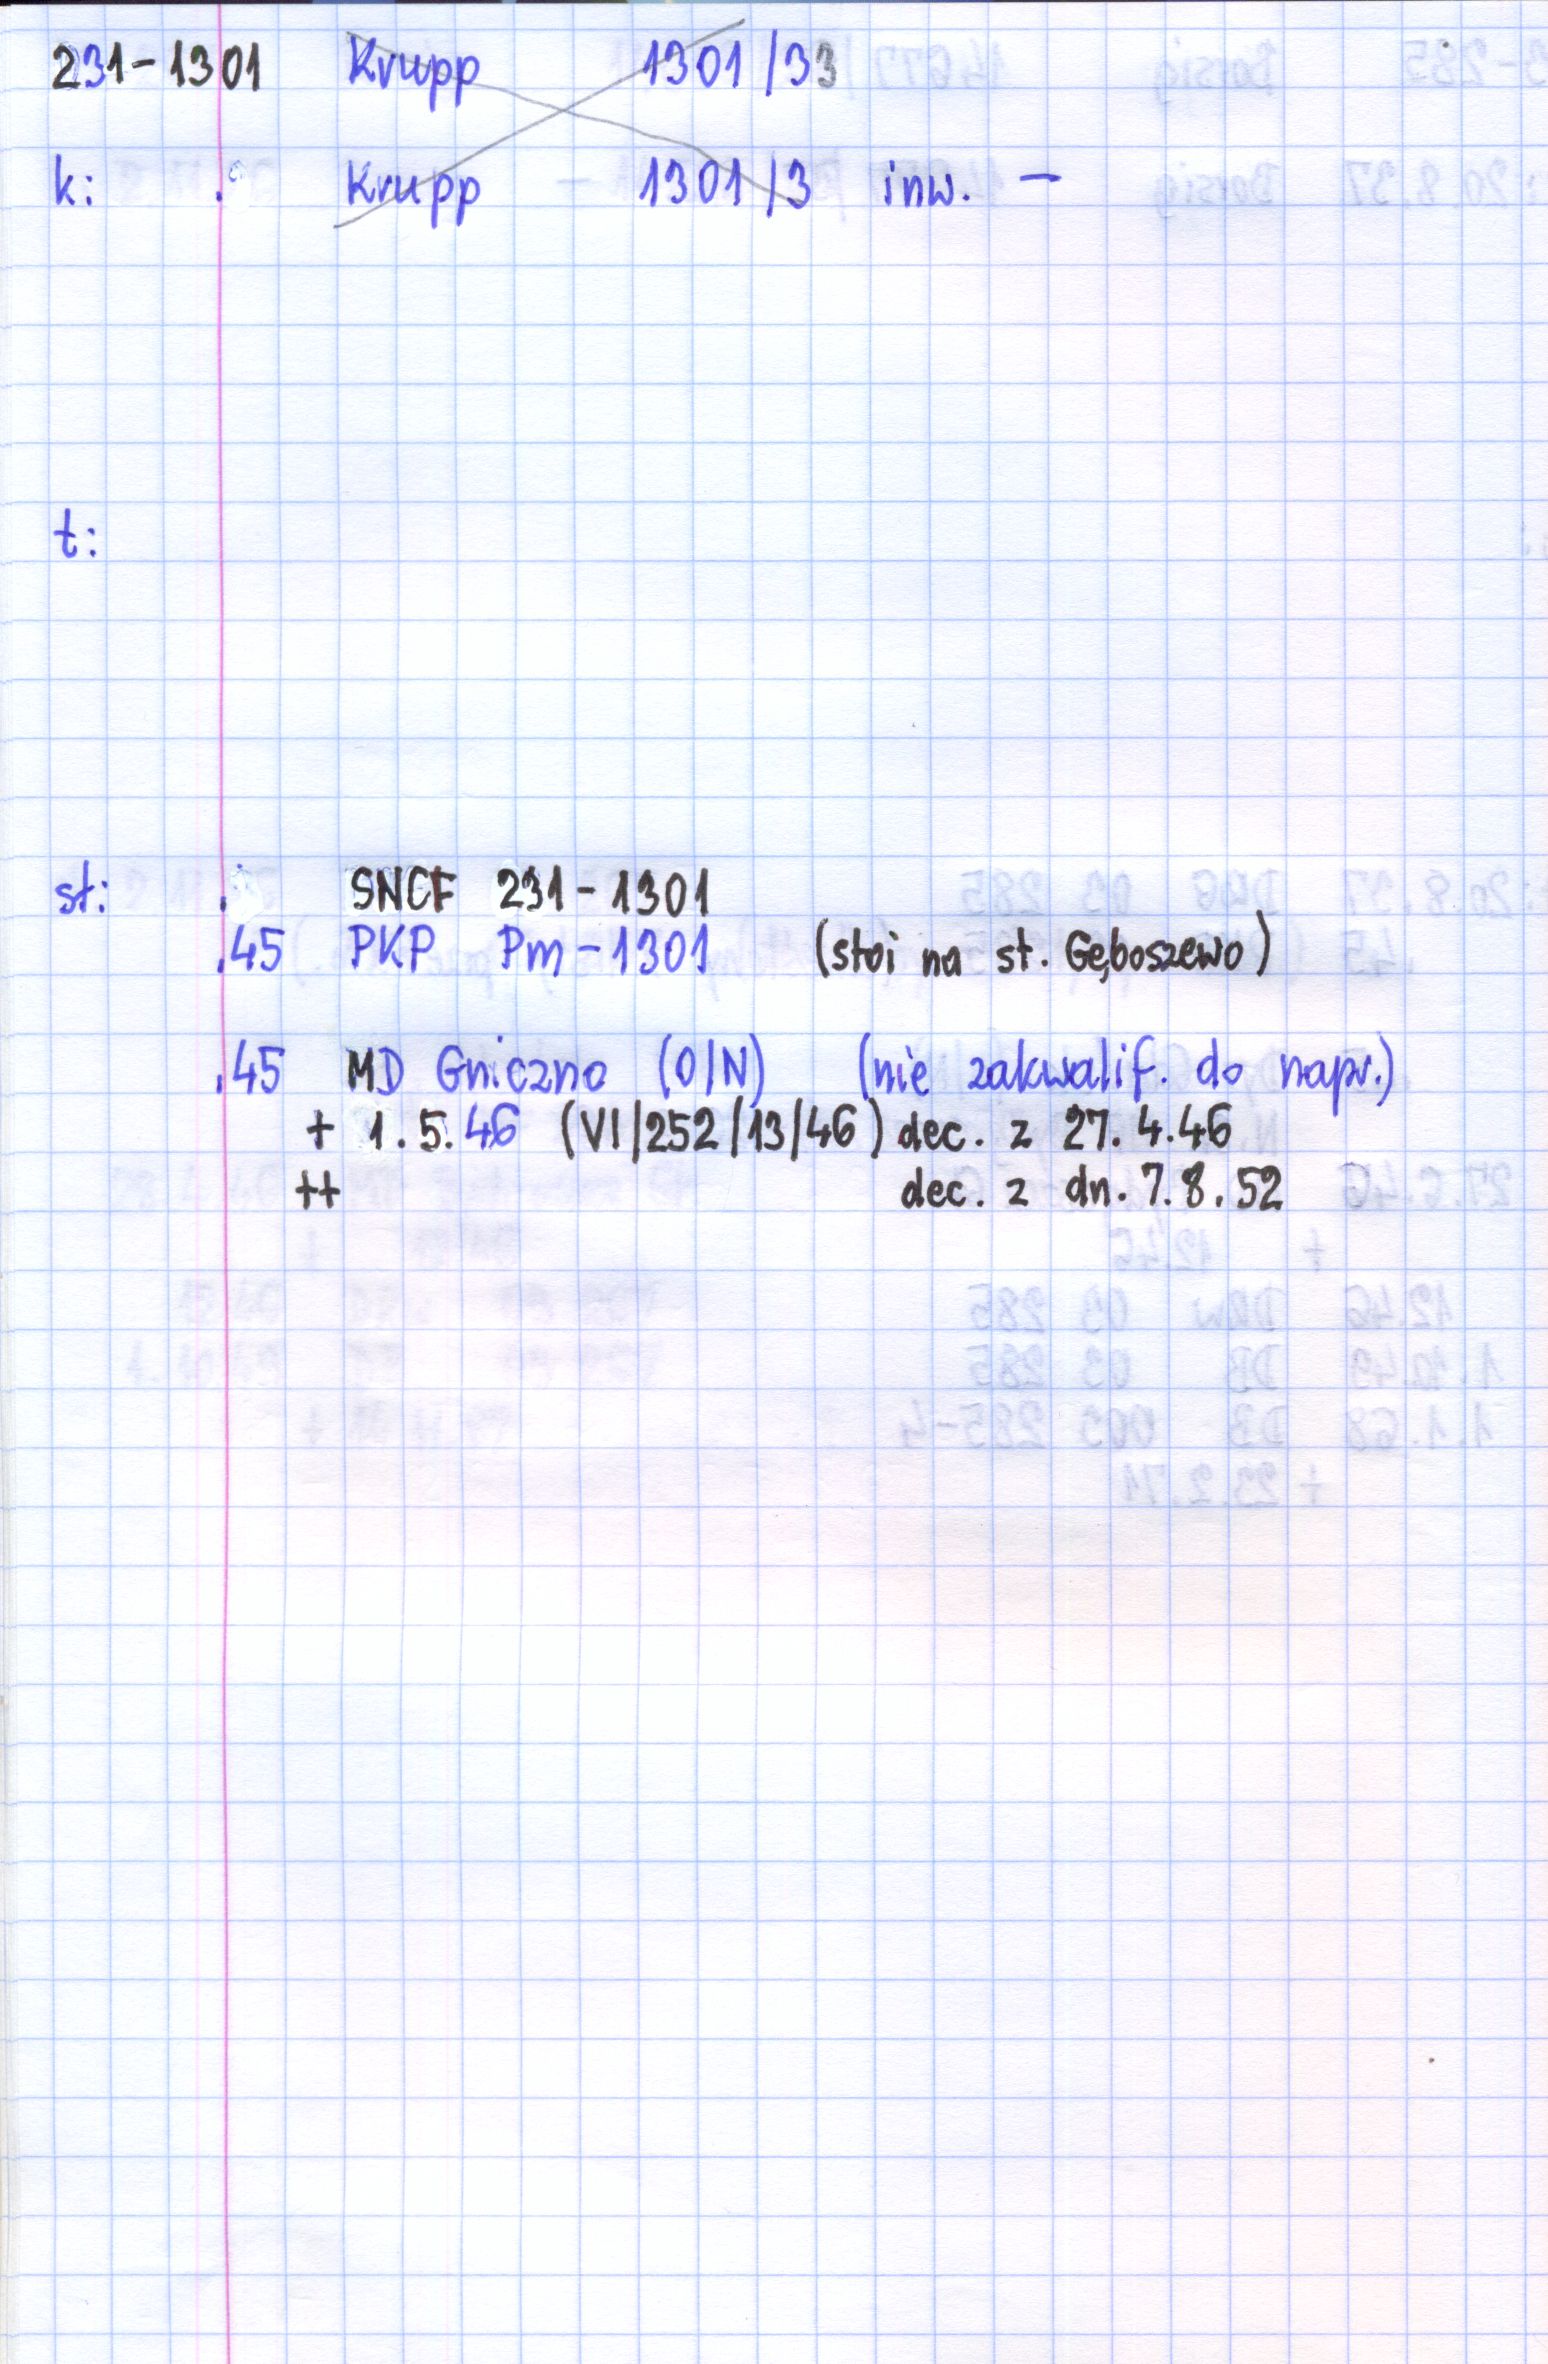 231-1301 Krupp 1301/33
k: . Krupp - 1301/3 inw. -
t:
st: . SNCF 231-1301
.45 PKP Pm-1301 (stoi na st. Gęboszewo)
.45 MD Gniezno (O/N) (nie zakwalif. do napr.)
+ 1.5.46 (VI/252/13/46) dec. z 27.4.46
++ dec. z dn. 7.8.52